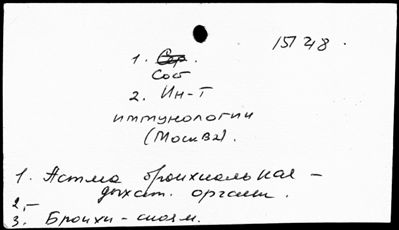 15 248.
1.
Сост
2. Ин-т
иммунологии
(Москва).
1. Астма бронхиальная -
дыхат. органы.
2. -
3. Бронхи -